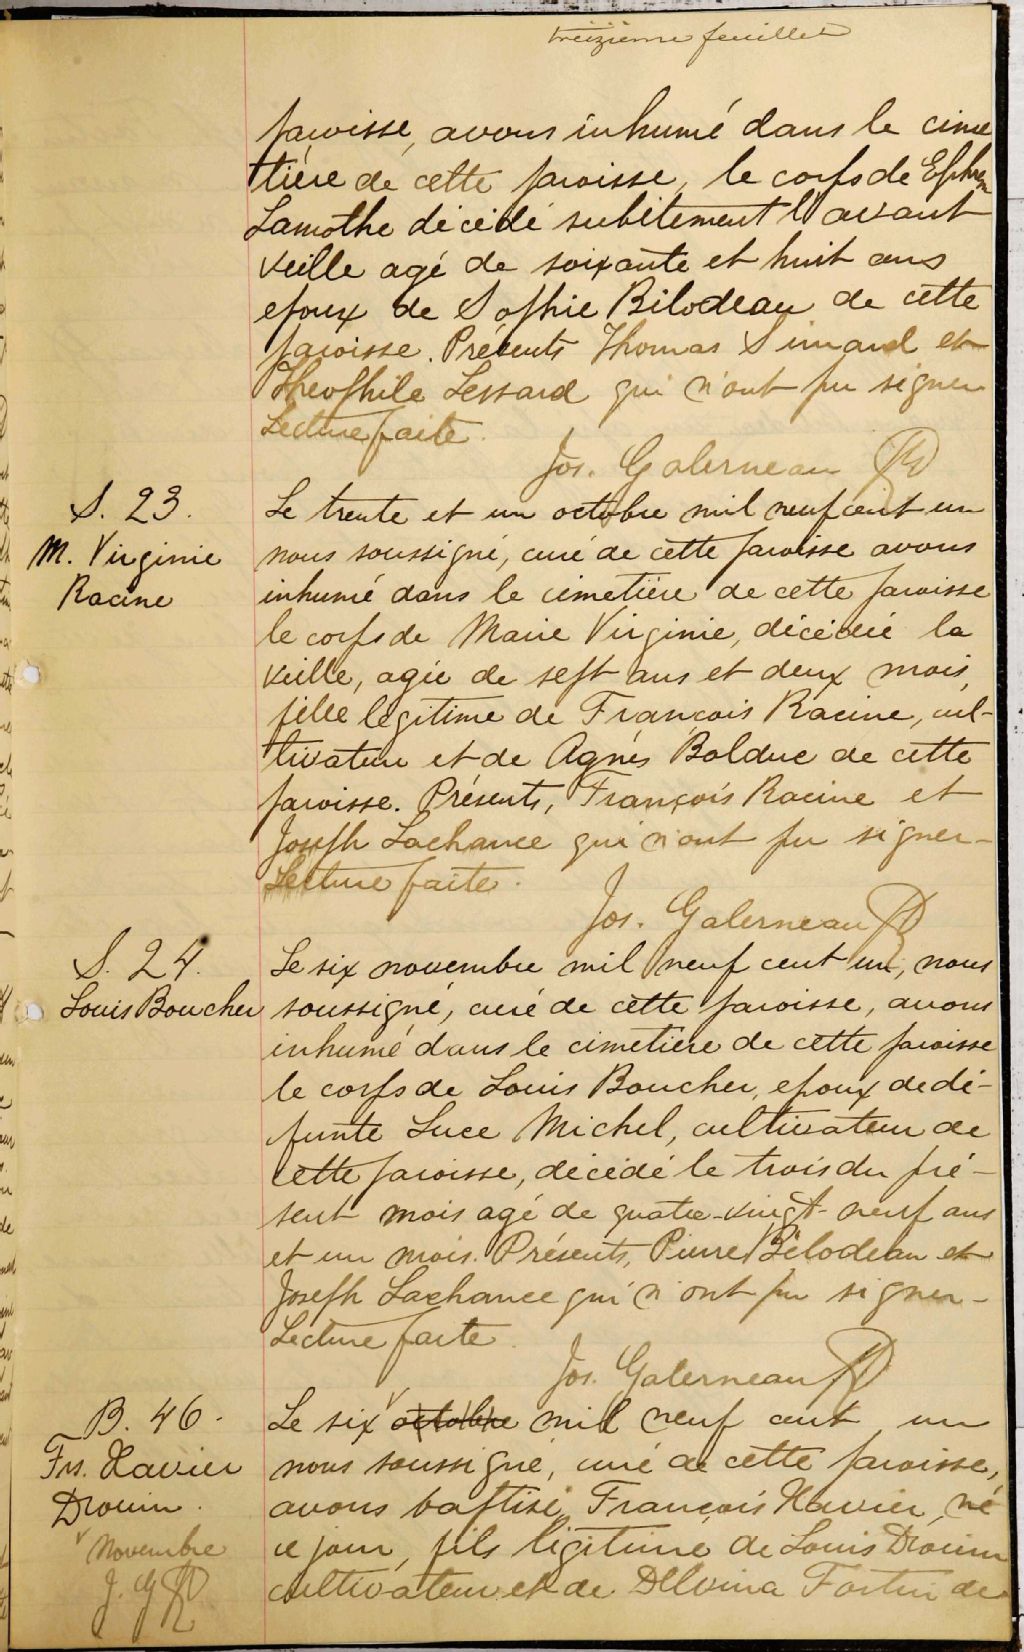 treizième feuillet
paroisse, avons inhumé dans le cime
tière de cette paroisse, le corps de Ephrem
Lamothe décédé subitement l'avant
veille agé de soixante et huit ans
epoux de Sophie Bilodeau de cette
paroisse. Présents Thomas Simard et
Theophile Lessard qui n'ont pu signer
Lecture faite.
Jos. Galerneau Ptre
S. 23.
M. Virginie
Racine
Le trente et un octobre mil neuf cent un
nous soussigné, curé de cette paroisse avons
inhumé dans le cimetière de cette paroisse
le corps de Marie Virginie, décédée la
veille, agée de sept ans et deux mois,
fille legitime de François Racine, cul-
tivateur et de Agnès Bolduc de cette
paroisse. Présents, François Racine et
Joseph Lachance qui n'ont pu signer-
Lecture faite.
Jos. Galerneau Ptre
S. 24.
Louis Boucher
Le six novembre mil neuf cent un, nous
soussigné, curé de cette paroisse, avons
inhumé dans le cimetière de cette paroisse
le corps de Louis Boucher, epoux de dé-
funte Luce Michel, cultivateur de
cette paroisse, décédé le trois du pré-
sent mois agé de quatre-vingt-neuf ans
et un mois. Présents, Pierre Bilodeau et
Joseph Lachance qui n'ont pu signer-
Lecture faite.
Jos. Galerneau Ptre
B. 46.
Frs. Xavier
Drouin.
Novembre
J. G. Ptre
Le six octobre mil neuf cent un
nous soussigné, curé de cette paroisse,
avons baptisé François Xavier, né
ce jour, fils légitime de Louis Drouin
cultivateur et de Delvina Fortin de